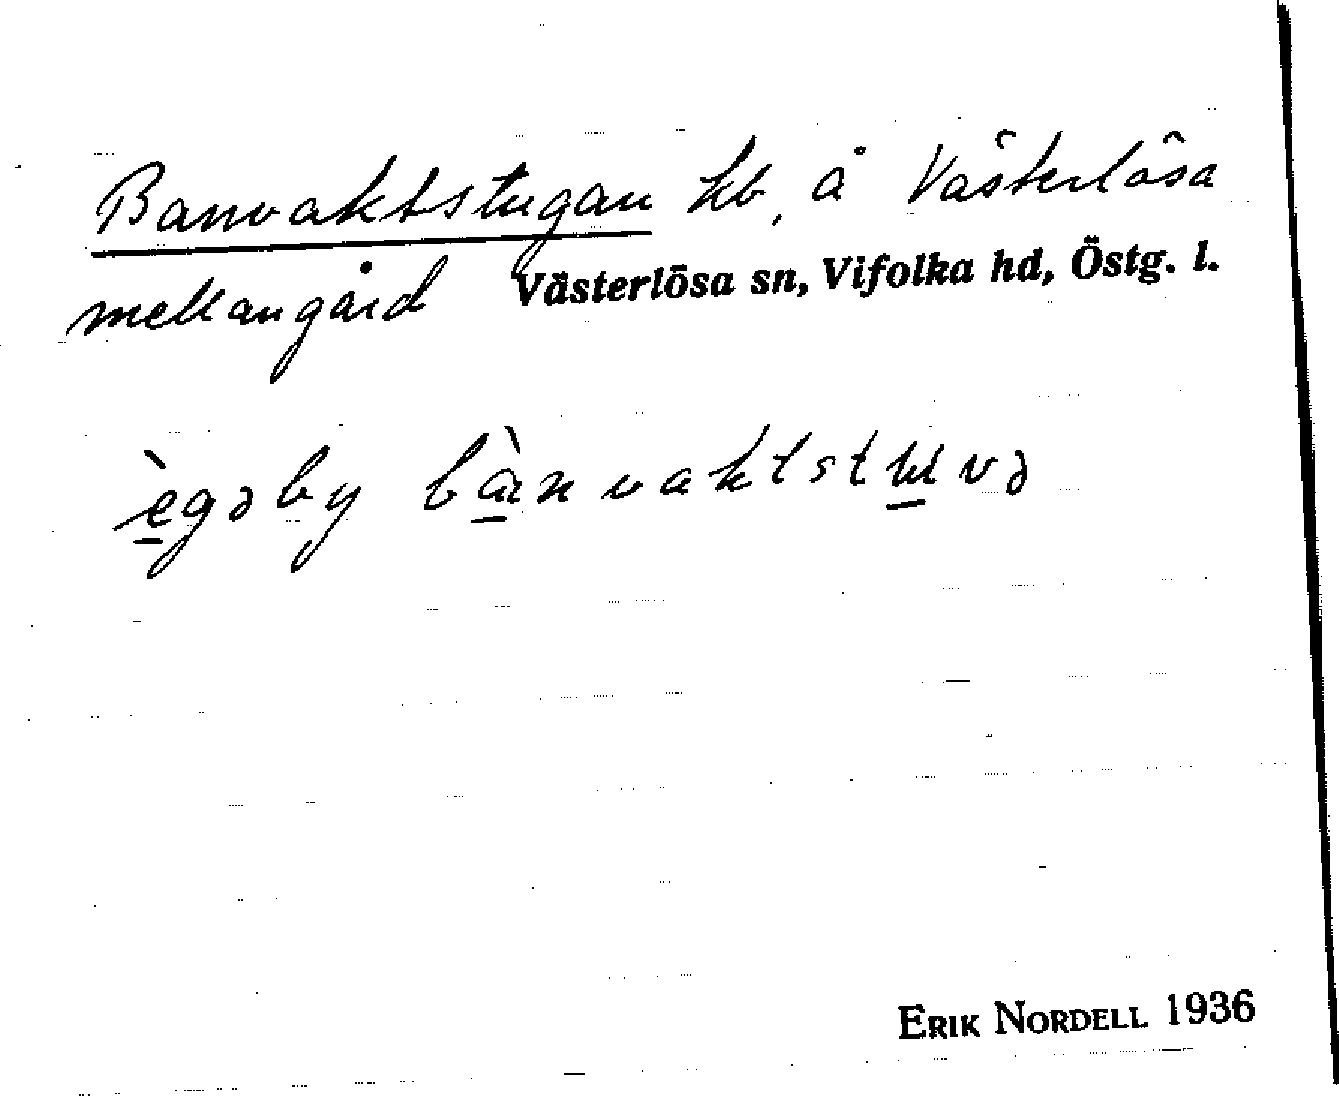 Banvaktstugan hb, å Västerlösa
mellangård Västerlösa sn, Vifolka hd, Östg. l.
ègəby bànvaktstuvə
ERIK NORDELL 1936